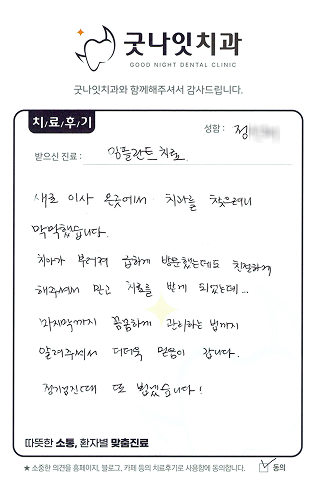 굿나잇치과
GOOD NIGHT DENTAL CLINIC
굿나잇치과와 함께해주셔서 감사드립니다.
치/료/후/기
성함 : 정
받으신 진료 : 임플란트 치료
새로 이사 온곳에서 치과를 찾으려니
막막했습니다.
치아가 부러져 급하게 방문했는데도 친절하게
해주셔서 믿고 치료를 받게 되었는데...
마지막까지 꼼꼼하게 관리하는 법까지
알려주셔서 더더욱 믿음이 갑니다.
정기검진때 또 뵙겠습니다!
따뜻한 소통, 환자별 맞춤진료
★ 소중한 의견을 홈페이지, 블로그, 카페 등의 치료후기로 사용함에 동의합니다. 동의